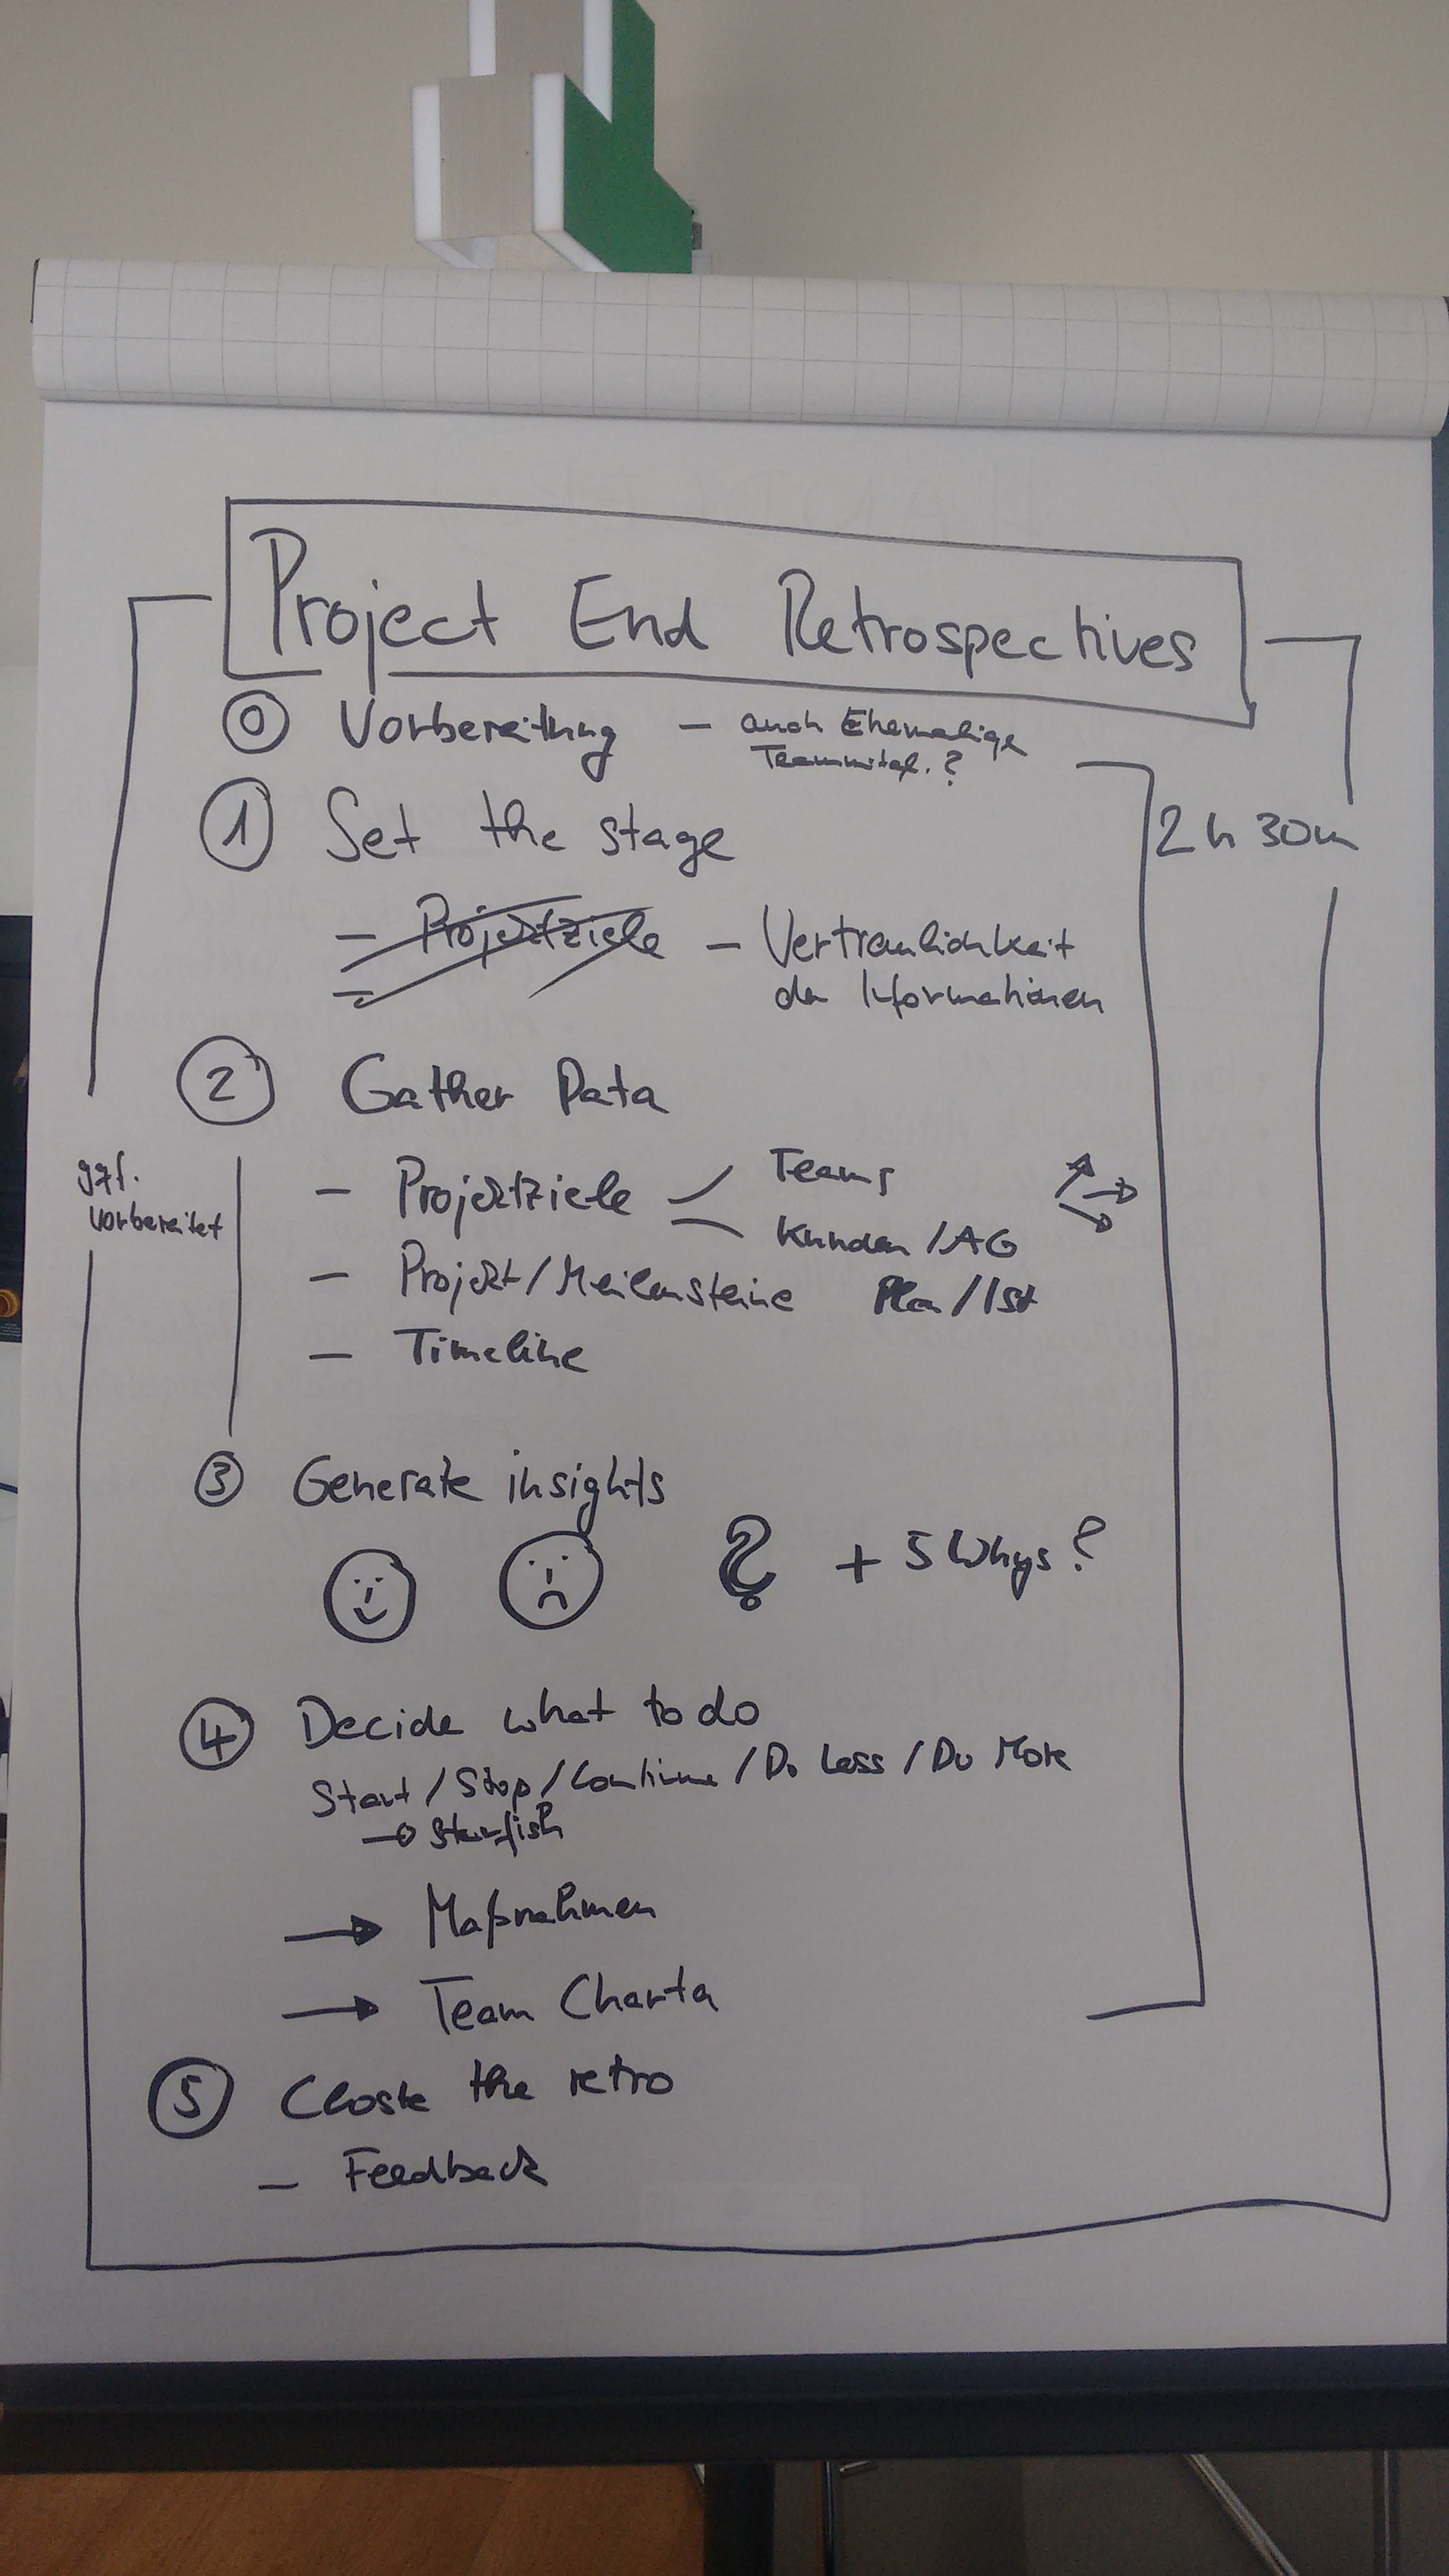 Project End Retrospectives
0 Vorbereitung – auch Ehemalige
Teammitgl.?
1 Set the stage
2h 30m
– Projektziele – Vertraulichkeit
der Informationen
2 Gather Data
ggf.
vorbereitet
– Projektziele Teams
Kunden/AG
– Projekt/Meilensteine Plan/Ist
– Timeline
3 Generate insights
? + 5 Whys?
4 Decide what to do
Start/Stop/Continue/Do Less/Do More
→ Starfish
→ Maßnahmen
→ Team Charta
5 Close the retro
– Feedback